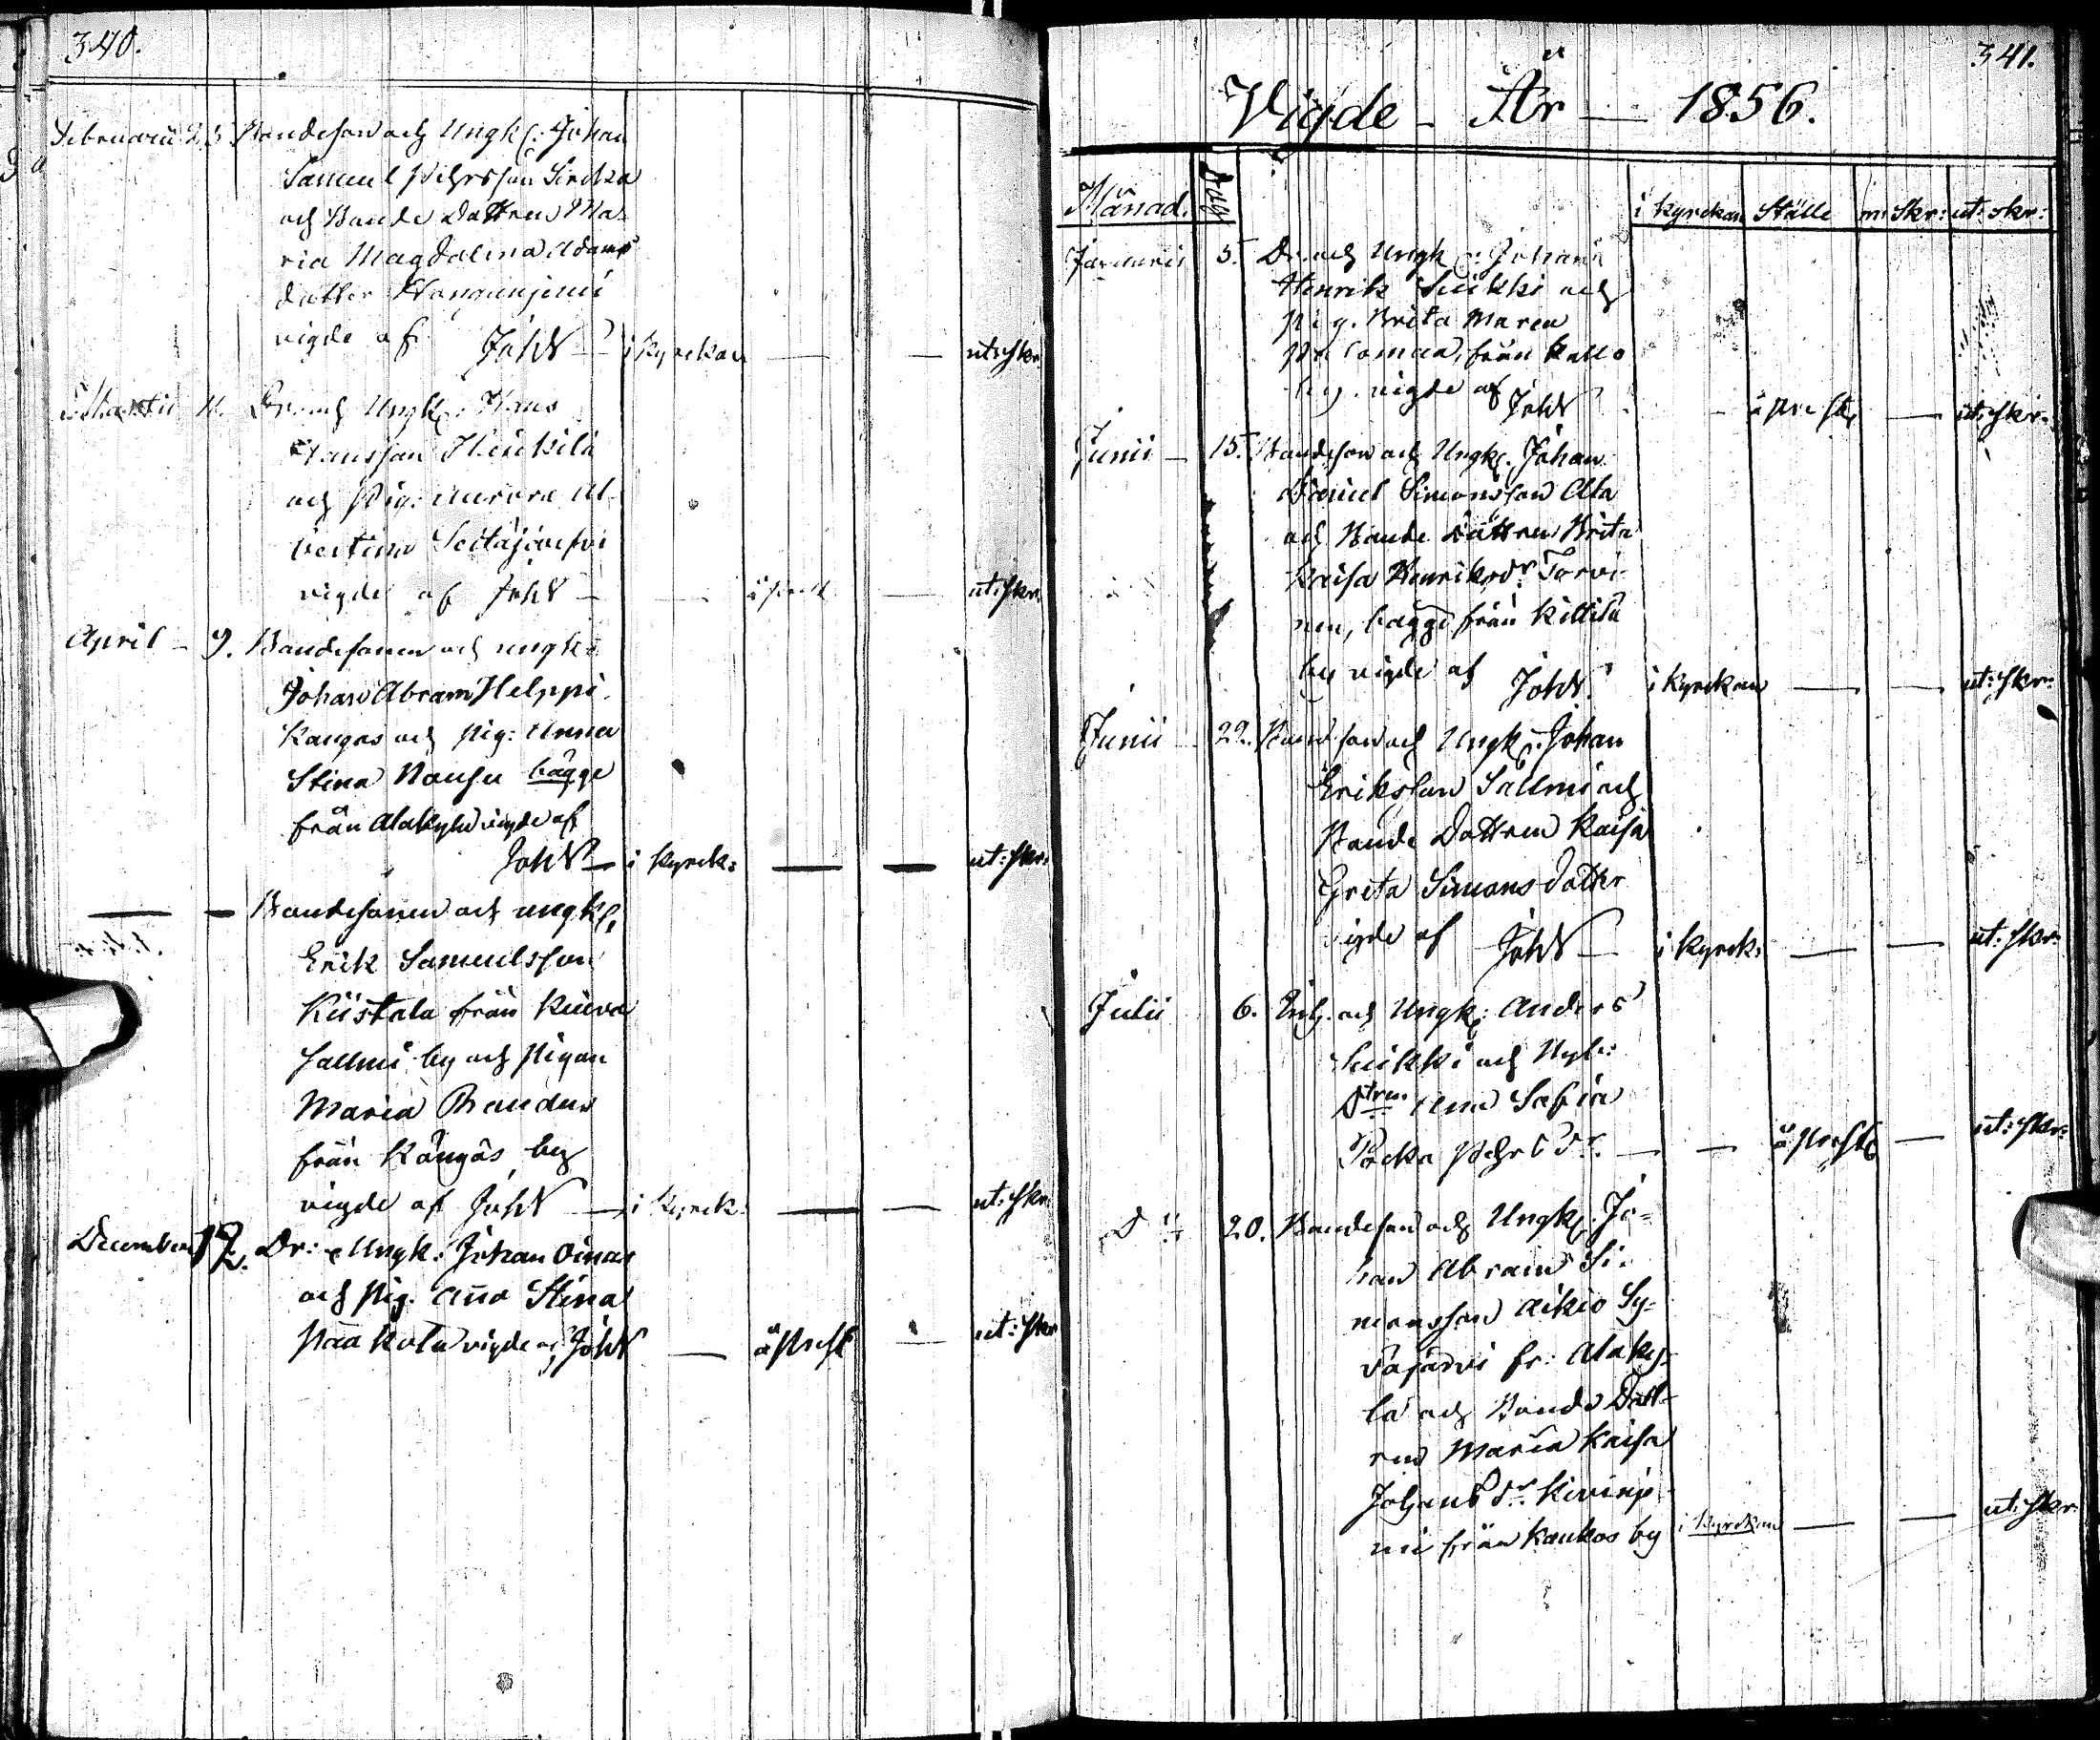 340.
Februarii 25. Bondeson och Ungk: Johan
Samuel Pehrsson Sirckka
och Bonde Dottren Ma-
ria Magdalena Adams
dotter
vigde af Joh N i kyrckan — — ut: skr:
Martii 11. Dr. och Ungk: Hans
Hansson Heikilä
och Pig: Aurora Al-
bertina
vigde af Joh N — — ut: skr:
April — 9. Bondesonen och ungk:
Johan Abram Helppi
Kangas och Pig: Anna
Stina bägge
från Alakylä vigde af
Joh N — i kyrck: — — ut: skr:
— — Bondesonen och ungk:
Erik Samuelsson
Kiistala från Kuiva
sallmi by och Pigan
Maria
från Kångäs by
vigde af Joh N — i kyrck: — — ut: skr:
December 12. Dr: & Ungk: Johan Oinas
och Pig. Anna Stina
vigde af Joh N — å Prest — ut: skr
341.
Vigde — År — 1856.
Månad. Dag i kyrckan Ställe in: skr: ut: skr:
Januarii 5. Dr. och Ungk: Johan
Henrik Suikki och
Pig. Brita Maria
från
by. vigde af Joh N — å Prest — ut: skr:
Junii — 15. Bondeson och Ungk: Johan
Daniel Simonsson Ala
och Bonde Dottren Brita
Kaisa Henriksdr Torvi-
nen, bägge från Kittilä
by vigde af Joh N. i kyrckan — — ut: skr:
Junii 22. Bondeson och Ungk: Johan
Eriksson Sallmi och
Bonde Dottren Kaisa
Greta Simons dotter
vigde af Joh N — i kyrck: — — ut: skr:
Julii 6. Inh. och Ungk: Anders
Suikki och Nyb:
Dtren Ana Sofia
Pehrs dr. — — å Prestg — ut: skr:
D:o 20. Bondeson och Ungk: Jo=
han Abram Si-
monsson Aikio Sy=
väjärvi fr: Alaky-
lä och Bonde Dott-
ren Maria Kaisa
Johans dr. Kivinie
mi från Kaukos by i kyrckan — — ut: skr: